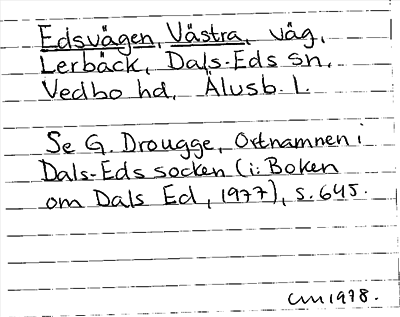 Edsvägen, Västra, väg,
Lerbäck, Dals-Eds sn,
Vedbo hd, Älvsb. l.
Se G. Drougge, Ortnamnen i
Dals-Eds socken (i: Boken
om Dals Ed, 1977), s. 645.
CM 1978.